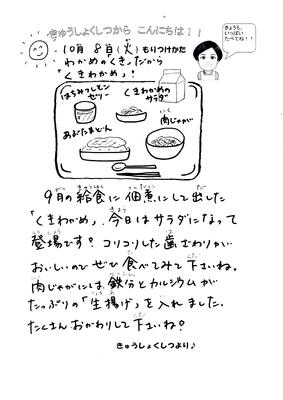 きゅうしょくしつから こんにちは!!
きょうも、
いっぱい
たべてね!!
10月 8日(火) もりつけかた
わかめの「くき」だから
「くきわかめ」!
はちみつレモン
ゼリー
くきわかめの
サラダ
肉じゃが
にく
あぶたまどん
9月の給食に 佃煮にして出した
「くきわかめ」、今日はサラダになって
登場です? コリコリした歯ざわりが
おいしいので ぜひ 食べてみて下さいね。
肉じゃがには、鉄分とカルシウムが
たっぷりの「生揚げ」を入れました。
たくさんおかわりして下さいね?
きゅうしょくしつより♪